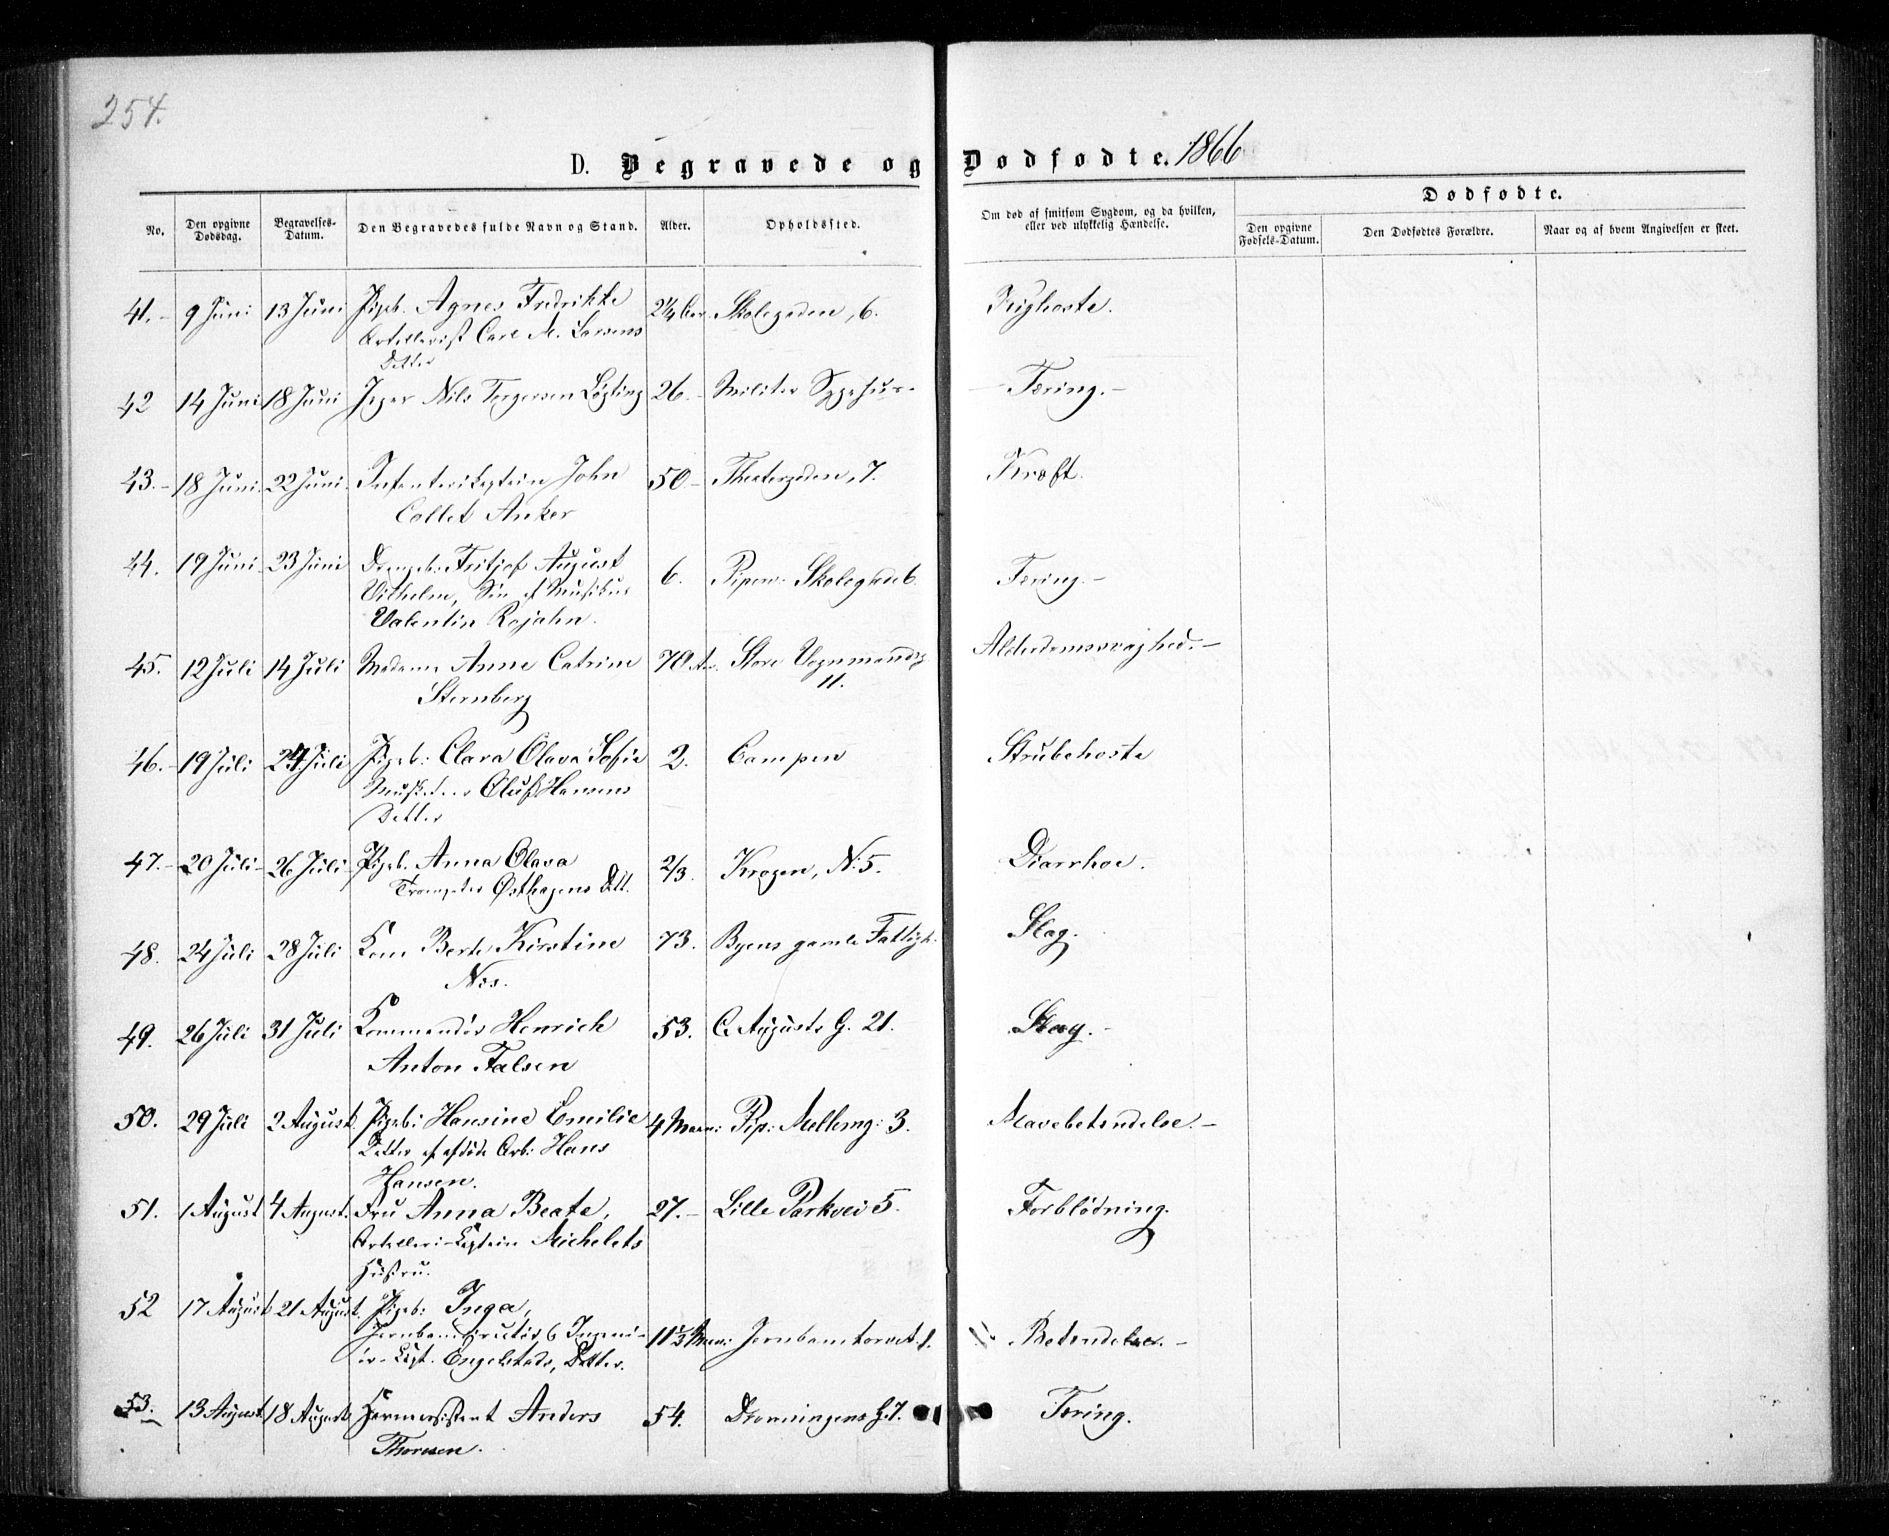 254.
D. Begravede og Dødfødte. 1866
No.
Den opgivne Dødsdag.
Begravelses-Datum.
Den Begravedes fulde Navn og Stand.
Alder.
Opholdssted.
Om død af smitsom Sygdom, og da hvilken, eller ved ulykkelig Hændelse.
Dødfødte.
Den opgivne Fødsels-Datum.
Den Dødfødtes Forældre.
Naar og af hvem Angivelsen er skeet.
41. 9 Juni 13 Juni Pigeb. Agnes Fredrikke 2 1/4 Skolegaden, 6. Kighoste.
Artillerist Carl M. Larsens
Datter
42 14 Juni 18 Juni Jæger Nils Torgersen 26. Militær Sygehus Tæring.
43. 18 Juni 22 Juni Infanterikaptein John 50 Theatergaden, 7. Kræft.
Collet Anker
44. 19 Juni 23 Juni Drengeb: Fritjof August 6. Piperv: Skolegaden 6. Tæring.
Vilhelm, Søn af Musikus
Valentin Rojahn.
45. 12 Juli 14 Juli Madame Anne Catrine 70 Aar Store Vognmandsg. Alderdomssvaghed.
Sternberg 11.
46. 19 Juli 24 Juli Pigeb: Clara Olava Sofie 2. Campen Strubehoste
Musketeer Oluf Hansens
Datter
47. 20 Juli 26 Juli Pigeb. Anna Olava 2/3. Krogen, N: 5. Diarrhoe.
Trompeter Østhagens Datt.
48. 24 Juli 28 Juli Kone Berte Kirstine 73. Byens gamle Fattigh. Slag.
Næs.
49. 26 Juli 31 Juli Kommandør Henrich 53. C. Augusts G. 21. Slag.
Anton Falsen
50. 29 Juli 2 August Pigeb: Hansine Emilie 4 Maan: Pip: Mellemg: 3. Mavebetændelse.
Datter af afdøde Arb: Hans
Hansen.
51. 1 August 4 August. Fru Anna Beate, 27. Lille Parkvei 5. Forblødning.
Artilleri-Kaptein Michelets
Hustru.
52 17 August 21 August. Pigeb: Inga, 11 1/2 Maan: Jernbanetorvet 1. Betændelse.
Jernbanedirektør & Ingeni-
ør-Kapt. Engelstads, Datter.
53. 13 August 18 August Havneassistent Anders 54. Dronningens G. 7. Tæring.
Thoresen.